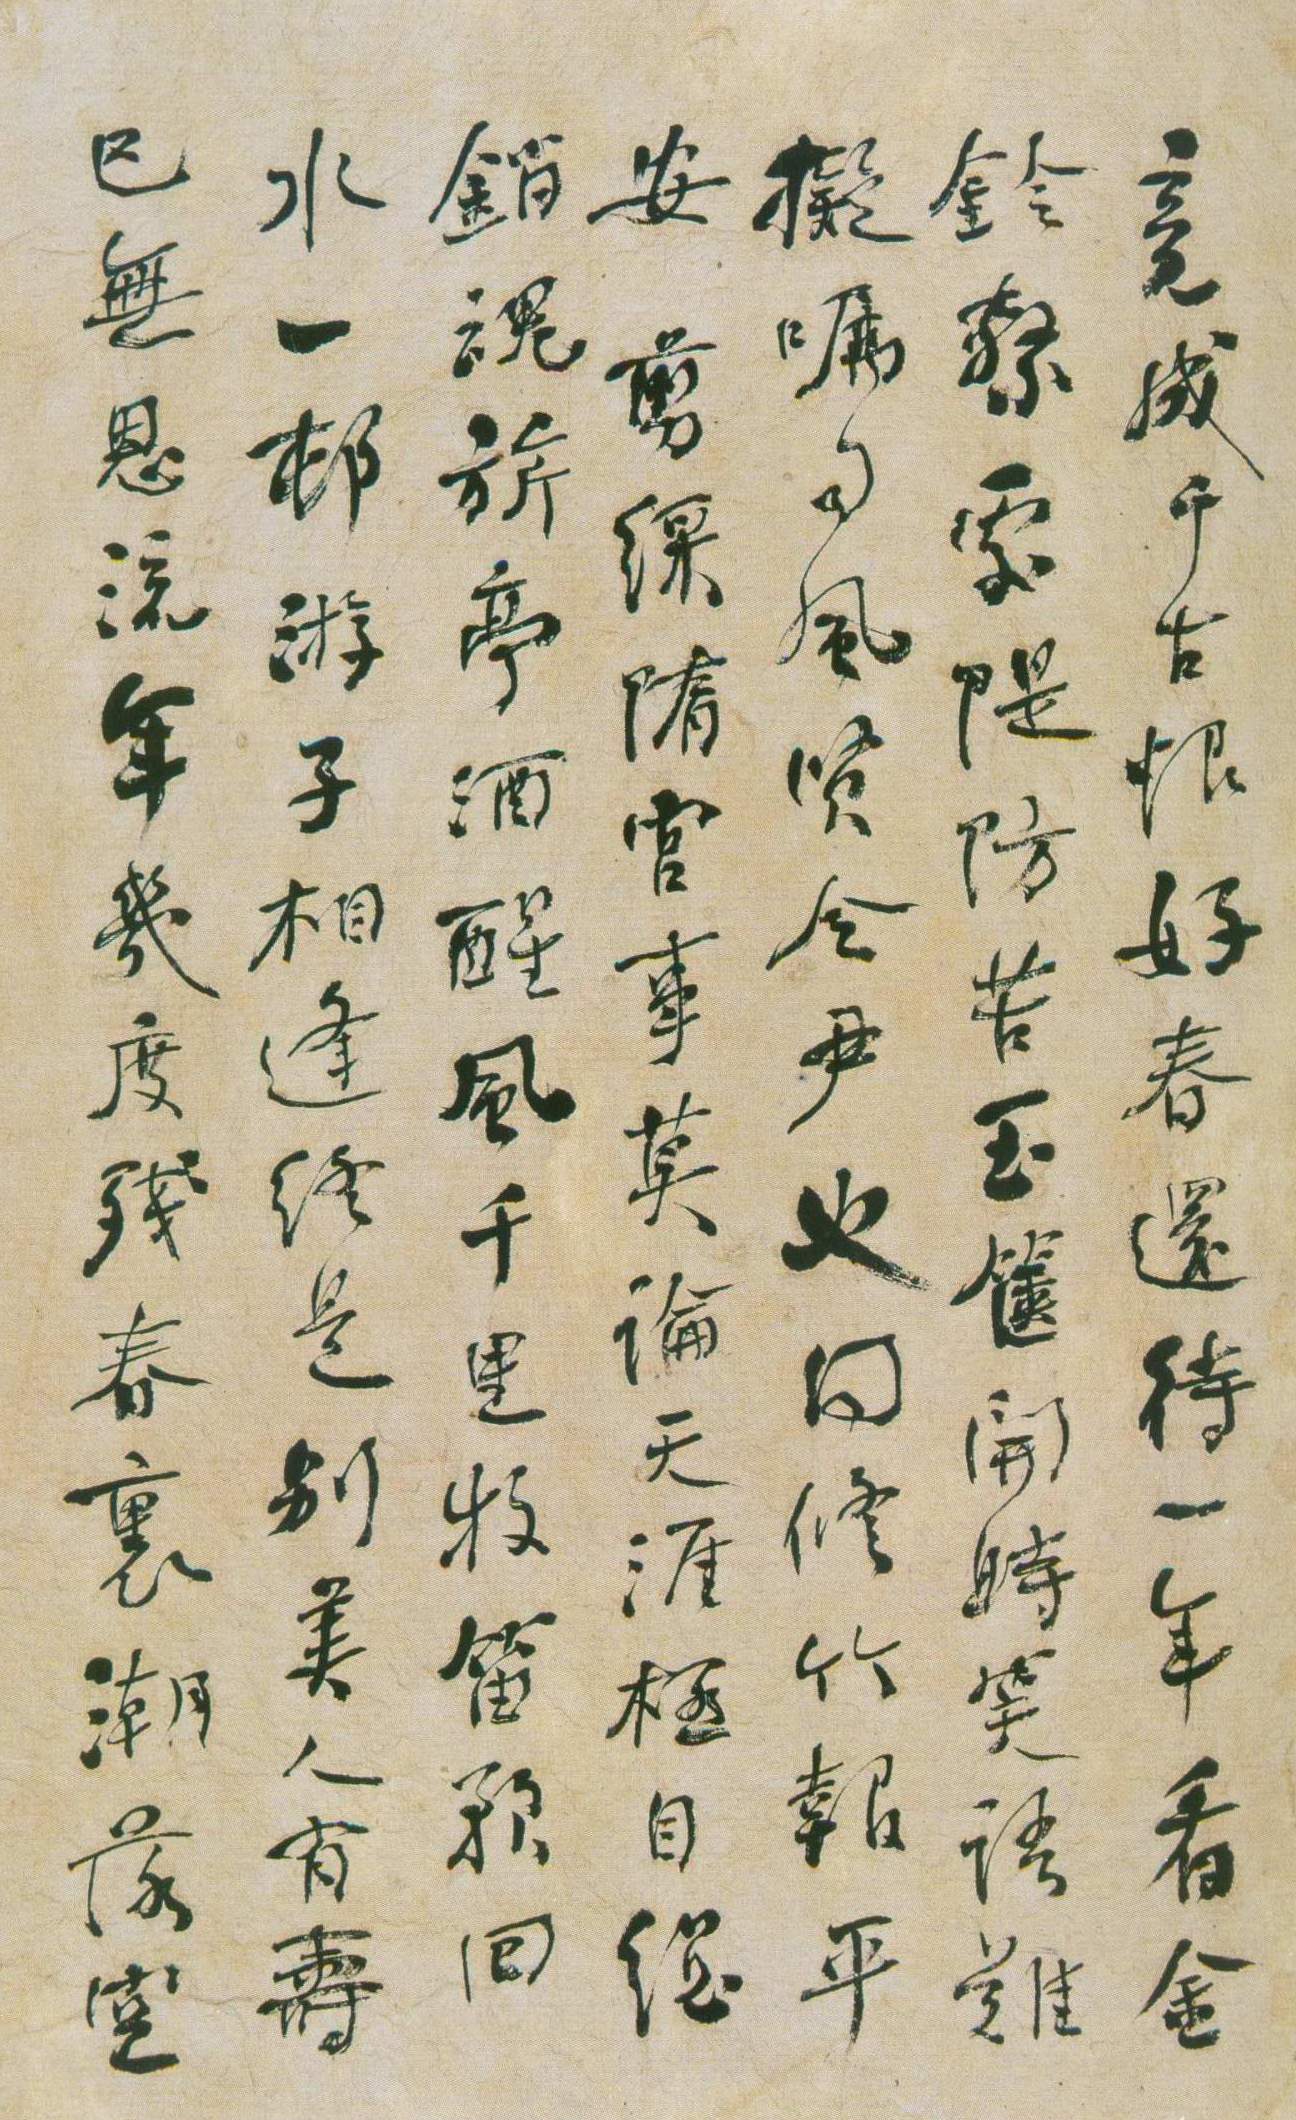 竟成千古恨好春還待一年看金
鈴繫處隄防苦玉篋開時笑語難
擬囑司風賢令尹也同修竹報平
安 剪綵隋宮事莫論天涯極目總
銷魂旂亭酒醒風千里牧笛歌回
水一邨游子相逢終是別美人有壽
已無恩流年幾度殘春裏潮落空